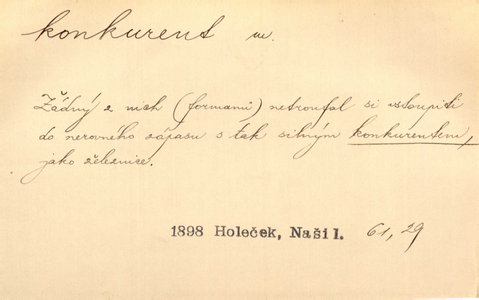 konkurent m.
Žádný z nich (formanů) netroufal si vstoupiti
do nerovného zápasu s tak silným konkurentem,
jako železnice.
1898 Holeček, Naši I. 61, 29